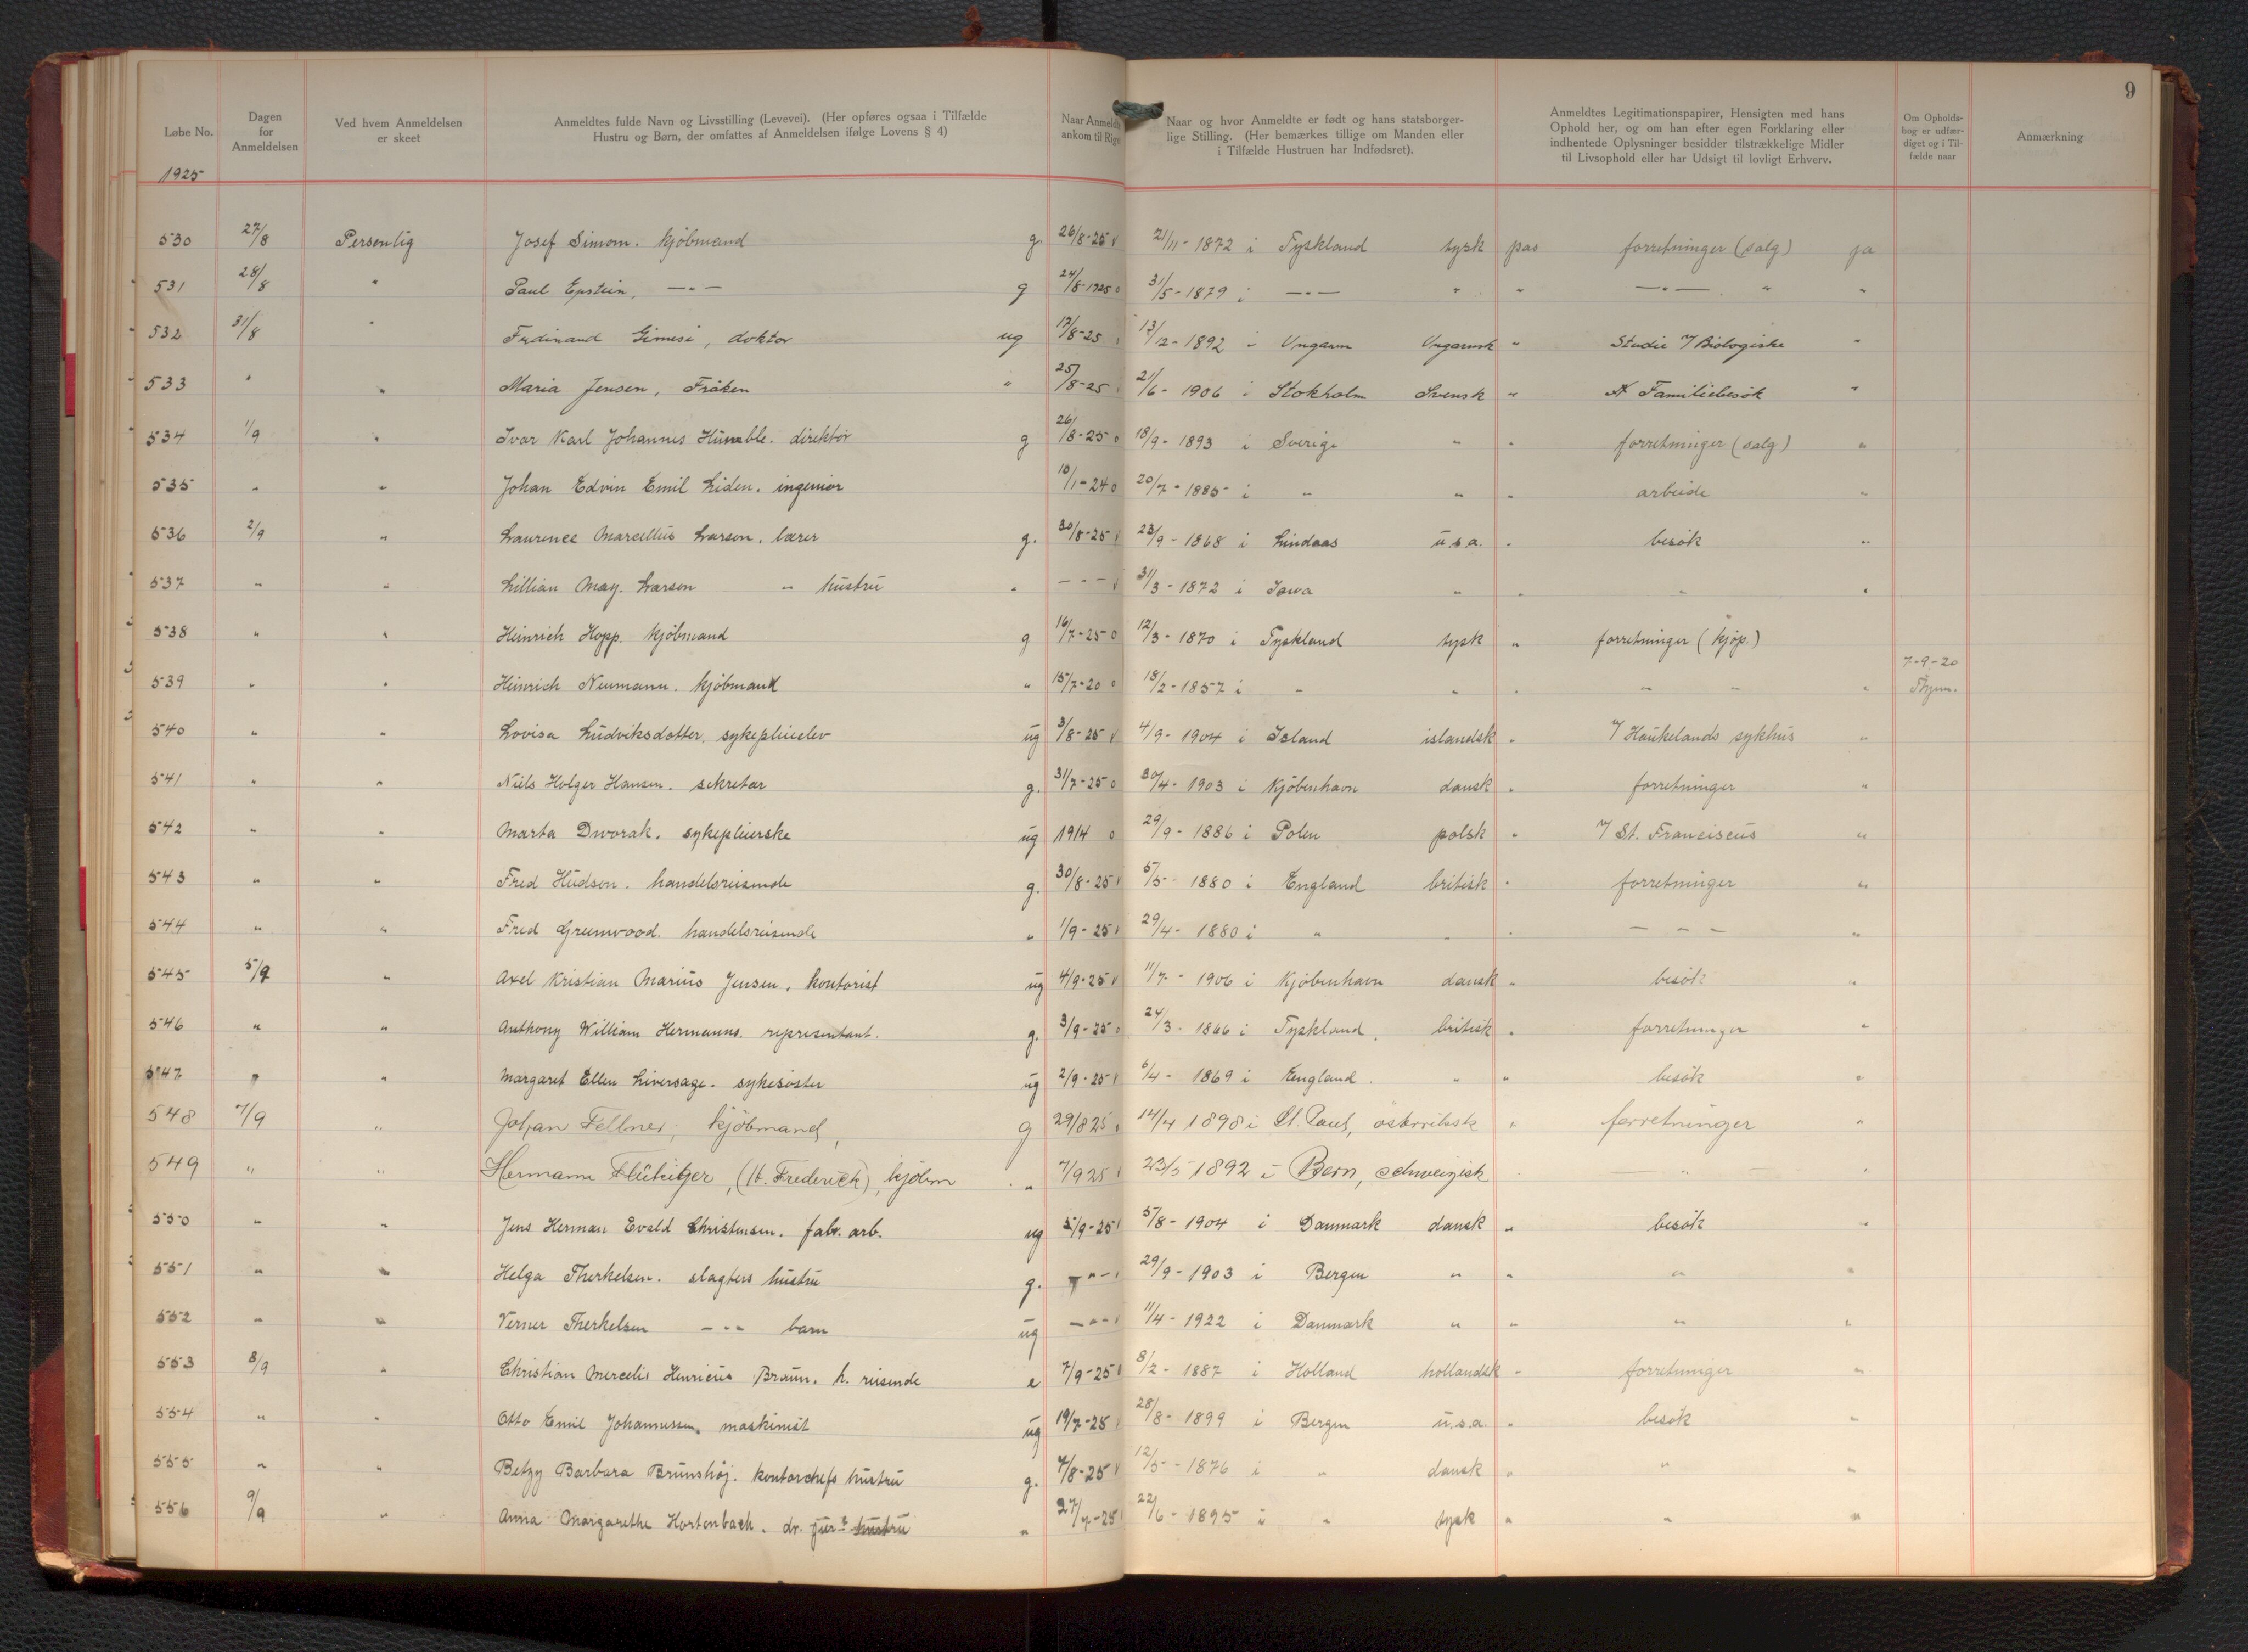 9
Løbe No. Dagen for Anmeldelsen Ved hvem Anmeldelsen er skeet Anmeldtes fulde Navn og Livsstilling (Levevei). (Her opføres ogsaa i Tilfælde Hustru og Børn, der omfattes af Anmeldelsen ifølge Lovens § 4) Naar Anmeldte ankom til Riget Naar og hvor Anmeldte er født og hans statsborgerlige Stilling. (Her bemærkes tillige om Manden eller i Tilfælde Hustruen har Indfødsret). Anmeldtes Legitimationspapirer, Hensigten med hans Ophold her, og om han efter egen Forklaring eller indhentede Oplysninger besidder tilstrækkelige Midler til Livsophold eller har Udsigt til lovligt Erhverv. Om Opholdsbog er udfærdiget og i Tilfælde naar Anmærkning
1925
530 27/8 Personlig Josef Simom. kjöbmand g. 26/8-25 21/11-1872 i Tyskland tysk pas forretninger (salg) ja
531 28/8 " Paul Epstein, —"— g 24/8-1925 31/5-1879 i —"— " " —"— " "
532 31/8 " Ferdinand Gimesi, doktor ug 17/8-25 13/12-1892 " Ungarn Ungarnsk " Studie v/ Biologiske "
533 " " Maria Jensen, Fröken " 25/8-25 21/6-1906 i Stokholm Svensk " Familiebesök "
534 1/9 " Ivar Karl Johannes Humble. direktör g 26/8-25 18/9-1893 i Sverige " " forretninger (salg) "
535 " " Johan Edvin Emil Liden. ingeniör 10/1-24 20/7-1885 i " " " arbeide "
536 2/9 " Laurence Marcellus Larson. lærer g. 30/8-25 23/9-1868 i Lindaas u.s.a. " besök "
537 " " Lillian May. Larson " hustru " — " — 31/3-1872 i Iowa " " " "
538 " " Heinrich Hopp. kjöbmand g 16/7-25 12/3-1870 i Tyskland tysk " forretninger (kjöp.)
539 " " Heinrich Neumann. kjöbmand " 15/7-20 18/2-1857 i " " " " " " 7-9-20
540 " " Lovisa Ludviksdotter. sykepleielev ug 3/8-25 4/9-1904 i Island islandsk " v/ Haukelands sykhus "
541 " " Niels Holger Hansen. sekretær g. 31/7-25 30/4-1903 i Kjöbenhavn dansk " forretninger "
542 " " Marta Dworak. sykepleierske ug 1914 29/9-1886 i Polen polsk " v/ St. Franciscus "
543 " " Fred Hudson. handelsreisende g. 30/8-25 5/5-1880 i England britisk " forretninger "
544 " " Fred Greenwood. handelsreisende " 1/9-25 29/4-1880 i " " " — " — "
545 5/9 " Axel Kristian Marius Jensen. kontorist ug 4/9-25 11/7-1906 i Kjöbenhavn dansk " besök "
546 " " Anthony William Hermanns. representant. g. 3/9-25 24/3-1866 i Tyskland. britisk " forretninger "
547 " " Margaret Ellen Liversage. sykesöster ug 2/9-25 6/4-1869 i England. " " besök "
548 7/9 " Johan Fellner, kjöbmand, g 29/8 25 14/4 1898 i St. Paul, österriksk " forretninger "
549 " " Hermann Flükiger, (H. Frederick), kjöbm " 7/9 25 23/5 1892 i Bern, schweizisk " — " — "
550 " " Jens Herman Evald Christensen. fabr. arb. ug 5/9-25 5/8-1904 i Danmark dansk " besök "
551 " " Helga Therkelsen. slagters hustru g. — " — 29/9-1903 i Bergen " " " "
552 " " Verner Therkelsen — " — barn ug — " — 11/4-1922 i Danmark " " " "
553 8/9 " Christian Mercelis Henricus Braun. h. reisende e 7/9-25 8/2-1887 i Holland hollandsk " forretninger "
554 " " Otto Emil Johannessen. maskinist ug 19/7-25 28/8-1899 i Bergen u.s.a. " besök "
555 " " Betzy Barbara Brunshöj. kontorchefs hustru g. 4/8-25 12/5-1876 i " dansk " " "
556 9/9 " Anna Margarethe Hortenbach. dr. jur. hustru " 27/7-25 22/6-1895 i " tysk " " "